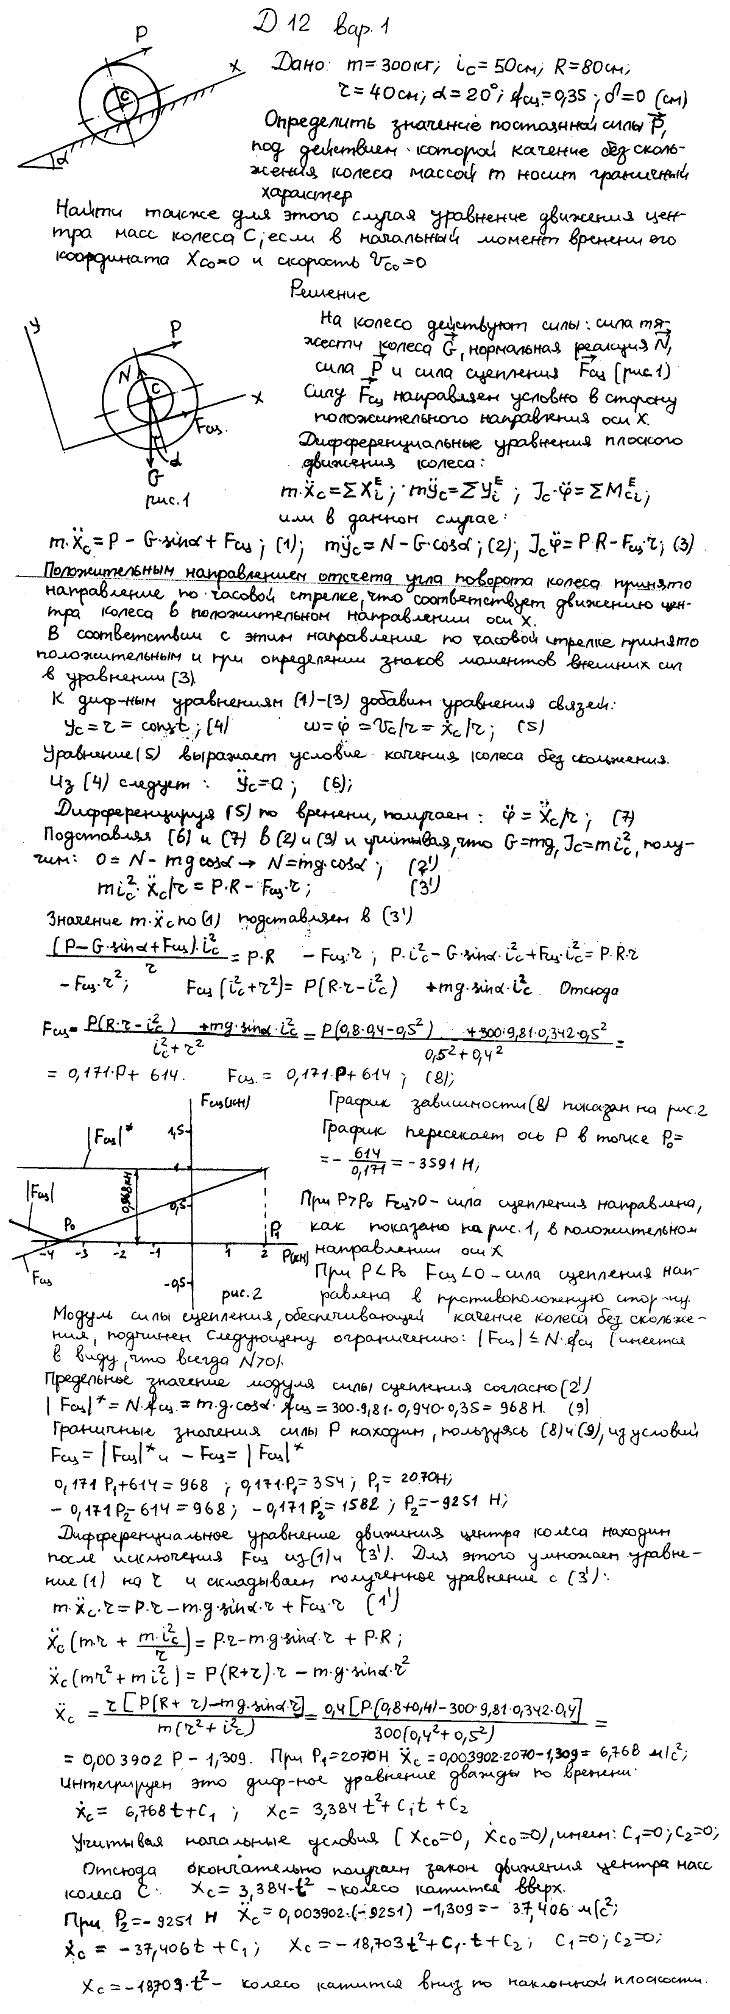 Д 12 вар. 1
P
x
C
α
Дано: m = 300 кг; i_c = 50 см; R = 80 см;
r = 40 см; α = 20°; f_сц = 0,35; δ = 0 (см)
Определить значение постоянной силы P⃗,
под действием которой качение без сколь-
жения колеса массой m носит граничный
характер
Найти также для этого случая уравнение движения цен-
тра масс колеса C, если в начальный момент времени его
координата X_C0 = 0 и скорость V_C0 = 0
Решение
y
P
N
C
x
F_сц.
α
G
рис. 1
На колесо действуют силы: сила тя-
жести колеса G⃗, нормальная реакция N⃗,
сила P⃗ и сила сцепления F⃗_сц (рис. 1)
Силу F⃗_сц направляем условно в сторону
положительного направления оси X.
Дифференциальные уравнения плоского
движения колеса:
m·ẍ_c = ΣX_i^E; mÿ_c = ΣY_i^E; J_c·φ̈ = ΣM_ci^E;
или в данном случае:
m·ẍ_c = P − G·sinα + F_сц; (1); mÿ_c = N − G·cosα; (2); J_cφ̈ = P·R − F_сц·r; (3)
Положительным направлением отсчета угла поворота колеса принято
направление по часовой стрелке, что соответствует движению цен-
тра колеса в положительном направлении оси X.
В соответствии с этим направление по часовой стрелке принято
положительным и при определении знаков моментов внешних сил
в уравнении (3)
К диф-ным уравнениям (1)-(3) добавим уравнения связей:
y_c = r = const; (4) ω = φ̇ = V_c/r = ẋ_c/r; (5)
Уравнение (5) выражает условие качения колеса без скольжения.
Из (4) следует: ÿ_c = 0; (6);
Дифференцируя (5) по времени, получаем: φ̈ = ẍ_c/r; (7)
Подставляя (6) и (7) в (2) и (3) и учитывая, что G = mg, J_c = mi_c², полу-
чим: 0 = N − mg cosα → N = mg·cosα; (2')
mi_c²·ẍ_c/r = P·R − F_сц·r; (3')
Значение m·ẍ_c по (1) подставляем в (3')
(P − G·sinα + F_сц)·i_c² / r = P·R − F_сц·r; P·i_c² − G·sinα·i_c² + F_сц·i_c² = P·R·r
− F_сц·r²; F_сц(i_c² + r²) = P(R·r − i_c²) + mg·sinα·i_c². Отсюда
F_сц = (P(R·r − i_c²) + mg·sinα·i_c²) / (i_c² + r²) = (P(0,8·0,4 − 0,5²) + 300·9,81·0,342·0,5²) / (0,5² + 0,4²) =
= 0,171·P + 614. F_сц = 0,171·P + 614; (8);
F_сц(кН)
1,5
1
0,5
−0,5
|F_сц|*
|F_сц|
0,968 кН
P₀
P₁
−4 −3 −2 −1 1 2 P(кН)
F_сц
рис. 2
График зависимости (8) показан на рис. 2
График пересекает ось P в точке P₀ =
= − 614/0,171 = −3591 Н;
При P > P₀ F_сц > 0 - сила сцепления направлена,
как показано на рис. 1, в положительном
направлении оси X
При P < P₀ F_сц < 0 - сила сцепления нап-
равлена в противоположную сторону.
Модуль силы сцепления, обеспечивающей качение колеса без скольже-
ния, подчинен следующему ограничению: |F_сц| ≤ N·f_сц (имеется
в виду, что всегда N>0).
Предельное значение модуля силы сцепления согласно (2')
|F_сц|* = N·f_сц = m·g·cosα·f_сц = 300·9,81·0,940·0,35 = 968 Н. (9)
Граничные значения силы P находим, пользуясь (8) и (9), из условий
F_сц = |F_сц|* и −F_сц = |F_сц|*
0,171 P₁ + 614 = 968; 0,171·P₁ = 354; P₁ = 2070 Н;
−0,171 P₂ − 614 = 968; −0,171 P₂ = 1582; P₂ = −9251 Н;
Дифференциальное уравнение движения центра колеса находим
после исключения F_сц из (1) и (3'). Для этого умножаем уравне-
ние (1) на r и складываем полученное уравнение с (3'):
m·ẍ_c·r = P·r − m·g·sinα·r + F_сц·r (1')
ẍ_c(m·r + m·i_c²/r) = P·r − m·g·sinα·r + P·R;
ẍ_c(mr² + mi_c²) = P(R+r)·r − m·g·sinα·r²
ẍ_c = r[P(R+r) − mg·sinα·r] / m(r² + i_c²) = 0,4[P(0,8+0,4) − 300·9,81·0,342·0,4] / 300(0,4² + 0,5²) =
= 0,003902 P − 1,309. При P₁ = 2070 Н ẍ_c = 0,003902·2070 − 1,309 = 6,768 м/с²;
Интегрируем это диф-ное уравнение дважды по времени:
ẋ_c = 6,768 t + C₁; x_c = 3,384 t² + C₁t + C₂
Учитывая начальные условия (X_C0 = 0, ẋ_C0 = 0), имеем: C₁ = 0; C₂ = 0;
Отсюда окончательно получаем закон движения центра масс
колеса C: x_c = 3,384·t² - колесо катится вверх.
При P₂ = −9251 Н ẍ_c = 0,003902·(−9251) − 1,309 = −37,406 м/с²;
ẋ_c = −37,406t + C₁; x_c = −18,703t² + C₁·t + C₂; C₁ = 0; C₂ = 0;
x_c = −18,703·t² - колесо катится вниз по наклонной плоскости.